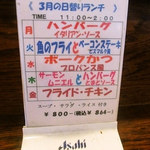 3月の日替りランチ
月 ハンバーグ
イタリアン・ソース
火 魚のフライとベーコンステーキ
デミグルソース
水 ポークかつ
プロバンス風
木 サーモンムニエルとハンバーグ
金 フライド・チキン
スープ・サラダ・ライス付き
¥800-(税込¥864-)
Asahi